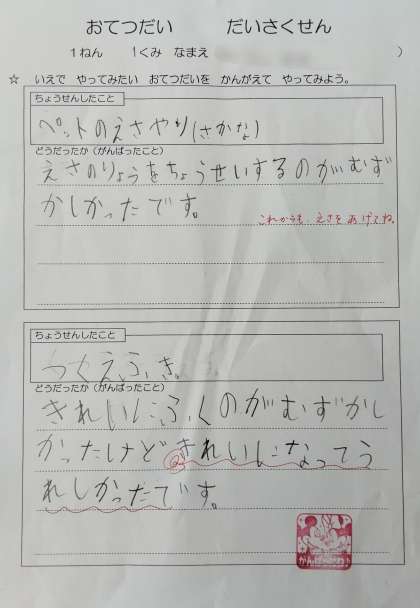 おてつだい だいさくせん
1ねん 1くみ なまえ )
☆ いえで やってみたい おてつだいを かんがえて やってみよう。
ちょうせんしたこと
ペットのえさやり(さかな)
どうだったか(がんばったこと)
えさのりょうをちょうせいするのがむず
かしかったです。
これからも えさを あげてね。
ちょうせんしたこと
つくえふき。
どうだったか(がんばったこと)
きれいにふくのがむずかし
かったけどきれいになってう
れしかったです。
がんばったね♪